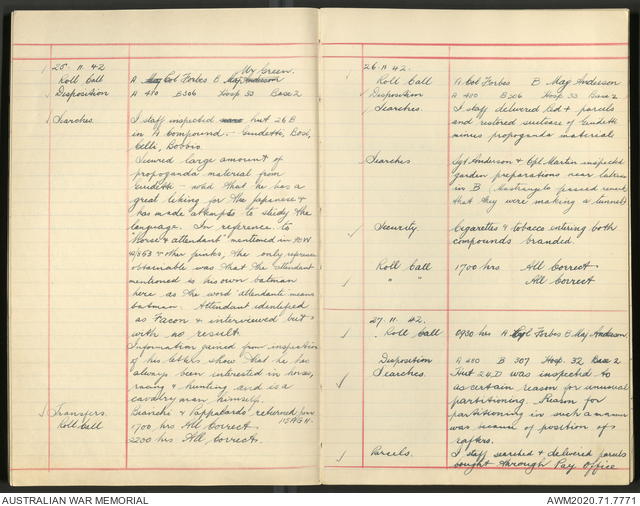 25. 11. 42. Wx Green.
Roll Call A Col Forbes B Maj Anderson
Disposition A 480 B 306 Hosp 33 Base 2
Searches. I staff inspected hut 26 B
in A Compound. - Giudetti, Bosi,
Celli, Bobbio.
Secured large amount of
propaganda material from
Giudetti - said that he has a
great liking for the Japanese &
has made attempts to study the
language. In reference to
"Horse & attendant" mentioned in POW
& other points, the only
obtainable was that the attendant
mentioned is his own batman
here as the word attendante means
batman. Attendant identified
as Facon & interviewed but
with no result.
Information gained from inspection
of his letters show that he has
always been interested in horses,
racing & hunting and is a
cavalry man himself.
Transfers. Bianchi & Pappalardo returned from
115 AGH.
Roll Call 1700 hrs All Correct
2230 hrs All Correct.
26. 11. 42.
Roll Call A Col Forbes B Maj Anderson
Disposition A 480 B 306 Hosp 33 Base 2
Searches. I staff delivered & parcels
and restored suitcase of Giudetti
minus propaganda material
Searches Sgt Anderson & Cpl Martin inspected
garden preparations near latrine
in B (Mastrangelo passed remark
that they were making a tunnel)
Security Cigarettes & tobacco entering both
compounds branded.
Roll Call 1700 hrs All Correct
" " All Correct
27. 11. 42.
Roll Call 0930 hrs A Col Forbes B Maj Anderson.
Disposition A 480 B 307 Hosp. 32 Base 2
Searches. Hut 24D was inspected to
ascertain reason for unusual
partitioning. Reason for
partitioning in such a manner
was because of position of
rafters.
Parcels. I staff searched & delivered parcels
bought through Pay Office
AUSTRALIAN WAR MEMORIAL
AWM2020.71.7771